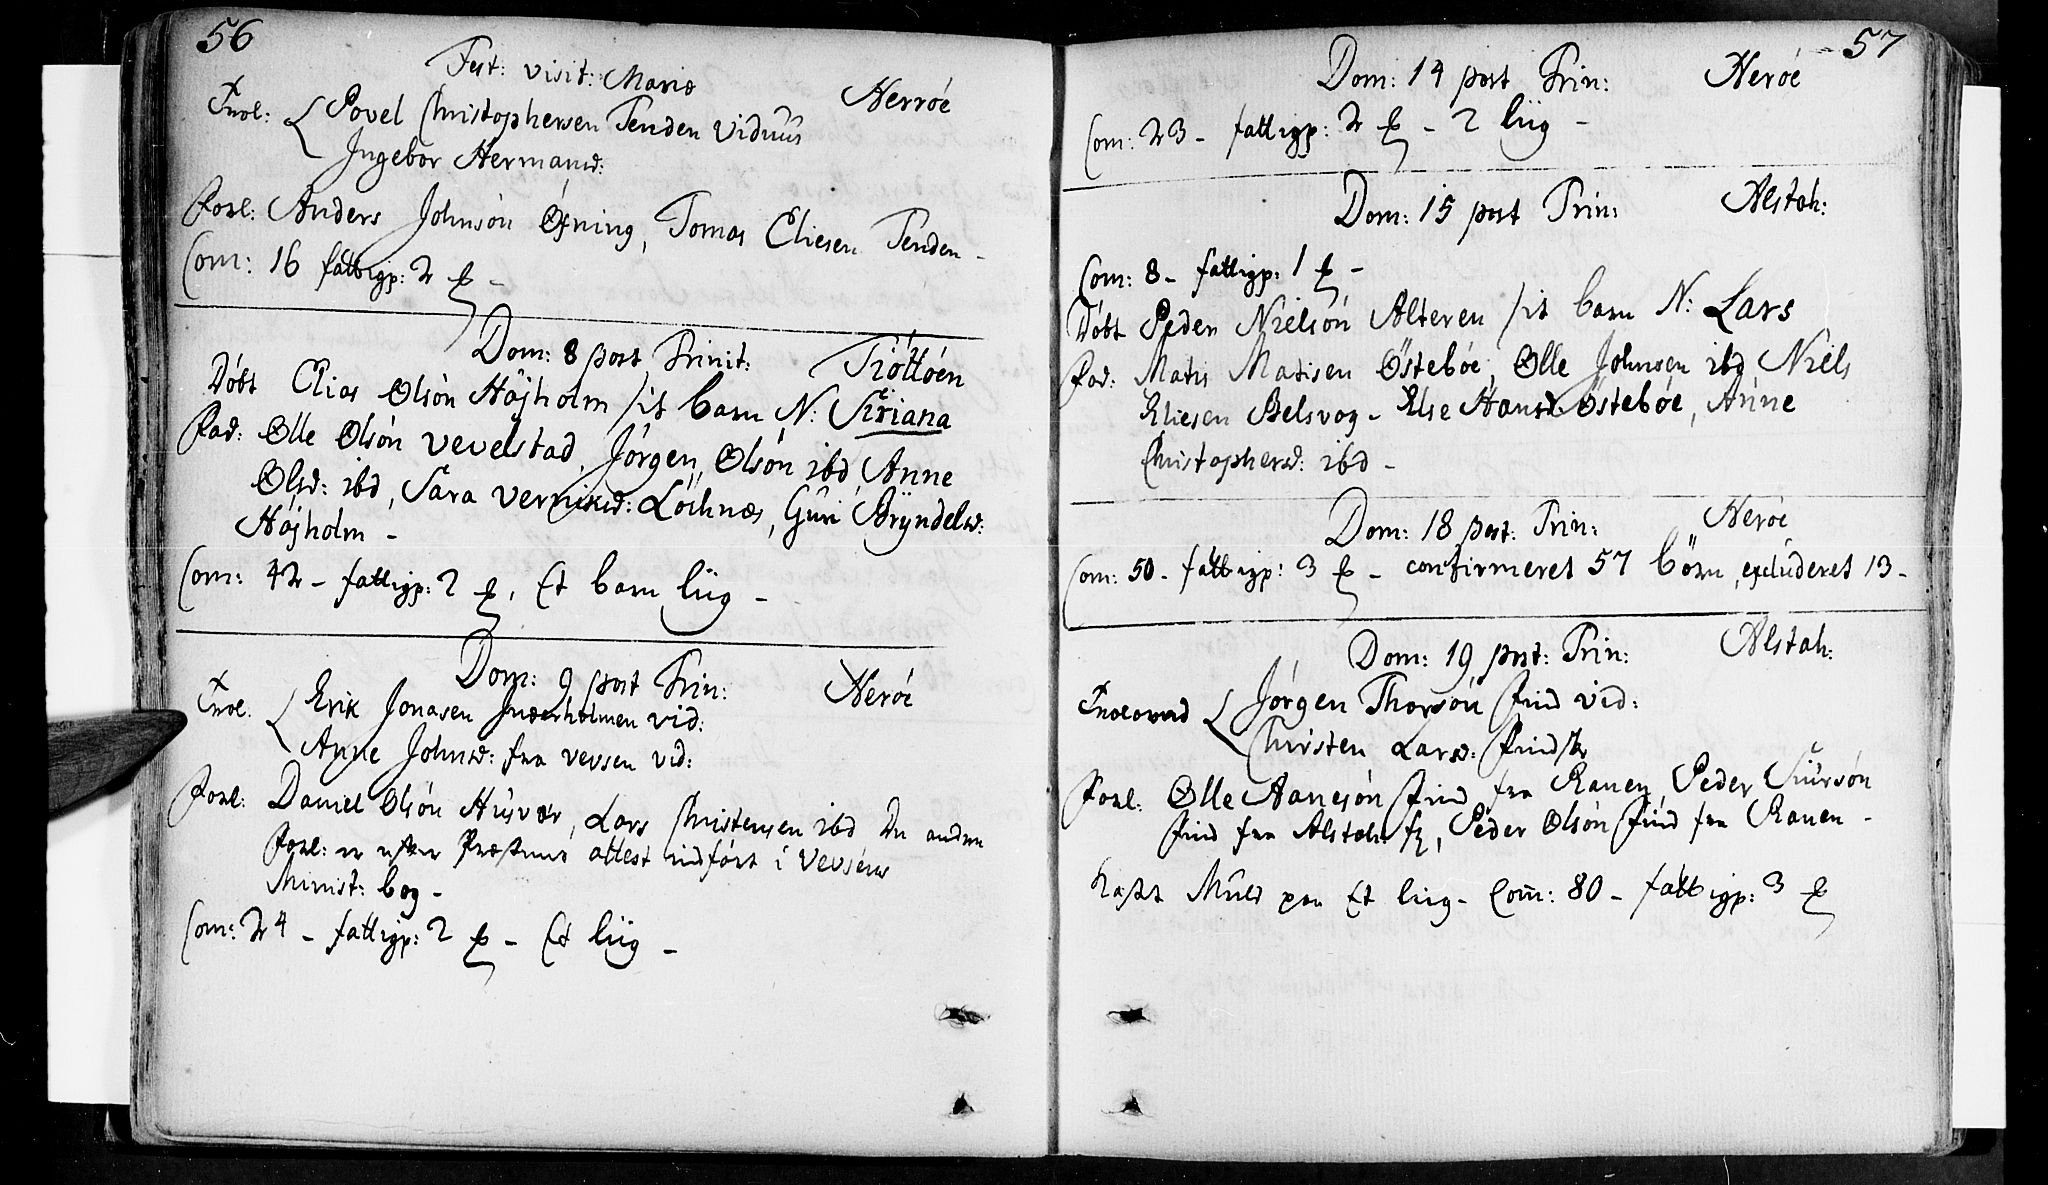 56
Fest: visit: Mariæ
Nerröe
Trol: Povel Christophersen Tenden viduus
Ingebor Hermansd:
Forl: Anders Johnsön Öfning, Tomas Eliesen Tenden -
Com: 16 fattigp: 2 ß -
Dom: 8 post Trinit: Tiöttöen
Döbt Elias Olsön Höjholm sit barn N: Siriana
Fad: Olle Olsön Vevelstad, Jörgen Olsön ibd Anne
Olsd: ibd, Sara Verniksd: Löchnæs, Guri Bryndelsd:
Höjholm -
Com: 42 - fattigp: 2 ß, Et barn liig -
Dom: 9 post Trin: Neröe
Trol. Erik Jonasen Inderholmen vid:
Anne Johnsd: fra Vevsen vid:
Forl: Daniel Olsön Husvær, Lars Christensen ibd De andre
Forl: er efter Præstens attest indfört i Vevsens
Minist: bog -
Com: 24 - fattigp: 2 ß - Et liig -
57
Dom: 14 post Trin: Neröe
Com: 23 - fattigp: 2 ß - 2 liig -
Dom: 15 post Trin: Alstah:
Com: 8 - fattigp: 1 ß -
Döbt Peder Nielsön Alteren sit barn N: Lars
Fad: Matis Matisen Östeböe, Olle Johnsen ibd Niels
Eliesen Belsvog - Else Hansd: Östeböe, Anne
Christophersd: ibd -
Dom: 18 post: Trin: Neröe
Com: 50 - fattigp: 3 ß - confirmeret 57 börn, excluderet 13 -
Dom: 19 post: Trin: Alstah:
Jörgen Thorsön Find vid:
Chirsten Larsd: Find
Forl: Olle Aanesön Find fra Ranen, Peder Siursön
Find fra Alstah: , Peder Olsön Find fra Ranen -
Kast Muld paa Et liig - Com: 80 - fattigp: 3 ß